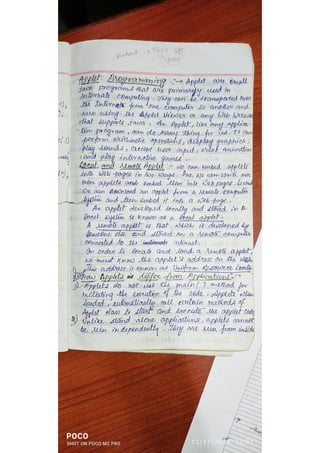 Applet Programming :→ Applet are small
Java programs that are primarily used in
internate computing. They can be transported over
the Internate from one computer to another and
run using the Applet Viewer or any Web Browser
that supports Java. An Applet, like any applica-
tion program, can do many thing for us. It can
perform arithmetic operations, display graphics,
play sounds, accept user input, create animation
and play interactive games.
Local and Remote Applet - we can embed applets
into web pages in two ways. One, we can write our
own applets and embed them into Web pages. Second
We can download an applet from a remote computer
system and then embed it into a web-page.
An applet developed locally and stored in a
local system is known as a local applet.
A remote applet is that which is developed by
someone else and stored on a remote computer
connected to the internet.
In order to locate and load a remote applet,
we must know the applet's address on the Web.
This address is known as Uniform Resource Locator
How Applets differ from Applications -
1) Applets do not use the main( ) method for
initiating the execution of the code. Applets when
loaded, automatically call certain methods of
Applet class to start and execute the applet code
2) Unlike stand alone applications, applets cannot
be run independently. They are run from inside
POCO
SHOT ON POCO M2 PRO